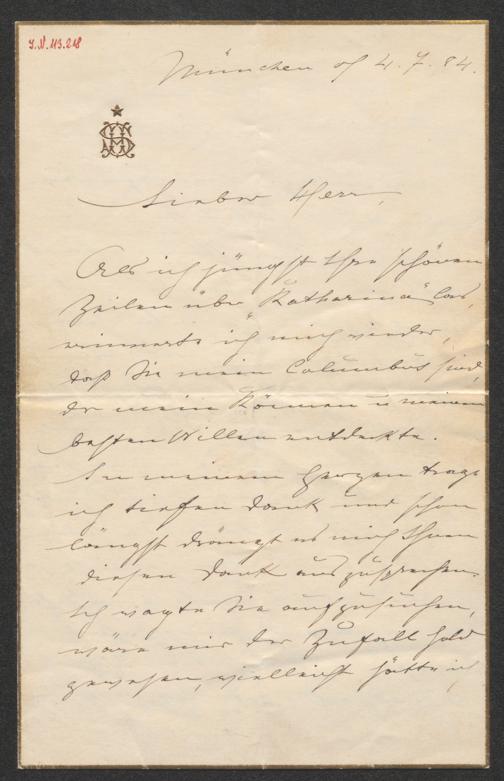 J.N. 113.218
München d 4. 7. 84.
Lieber Herr,
Als ich jüngst Ihre schönen
Zeilen über "Katharina" las,
erinnerte ich mich wieder,
daß Sie mein Columbus sind,
der mein Können u meinen
besten Willen entdeckte.
In meinem Herzen trage
ich tiefen Dank und schon
längst drängt es mich Ihnen
diesen Dank auszusprechen.
Ich wagte Sie aufzusuchen,
wäre mir der Zufall hold
gewesen, vielleicht hätte ich